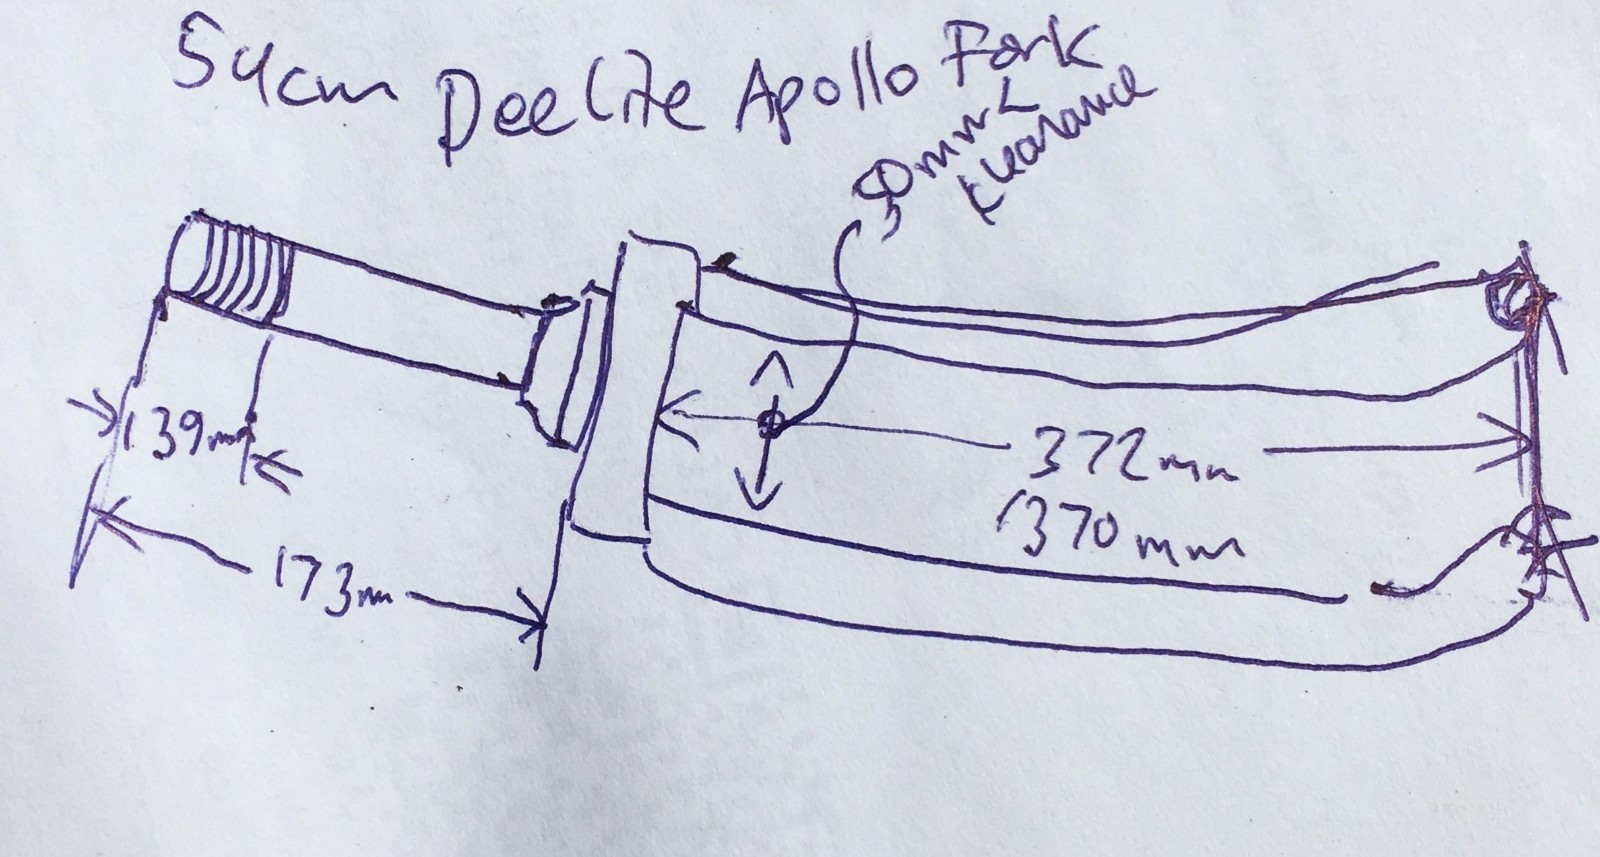 54cm Deelite Apollo Fork
mm
clearance
39mm
372mm
(370mm
173mm